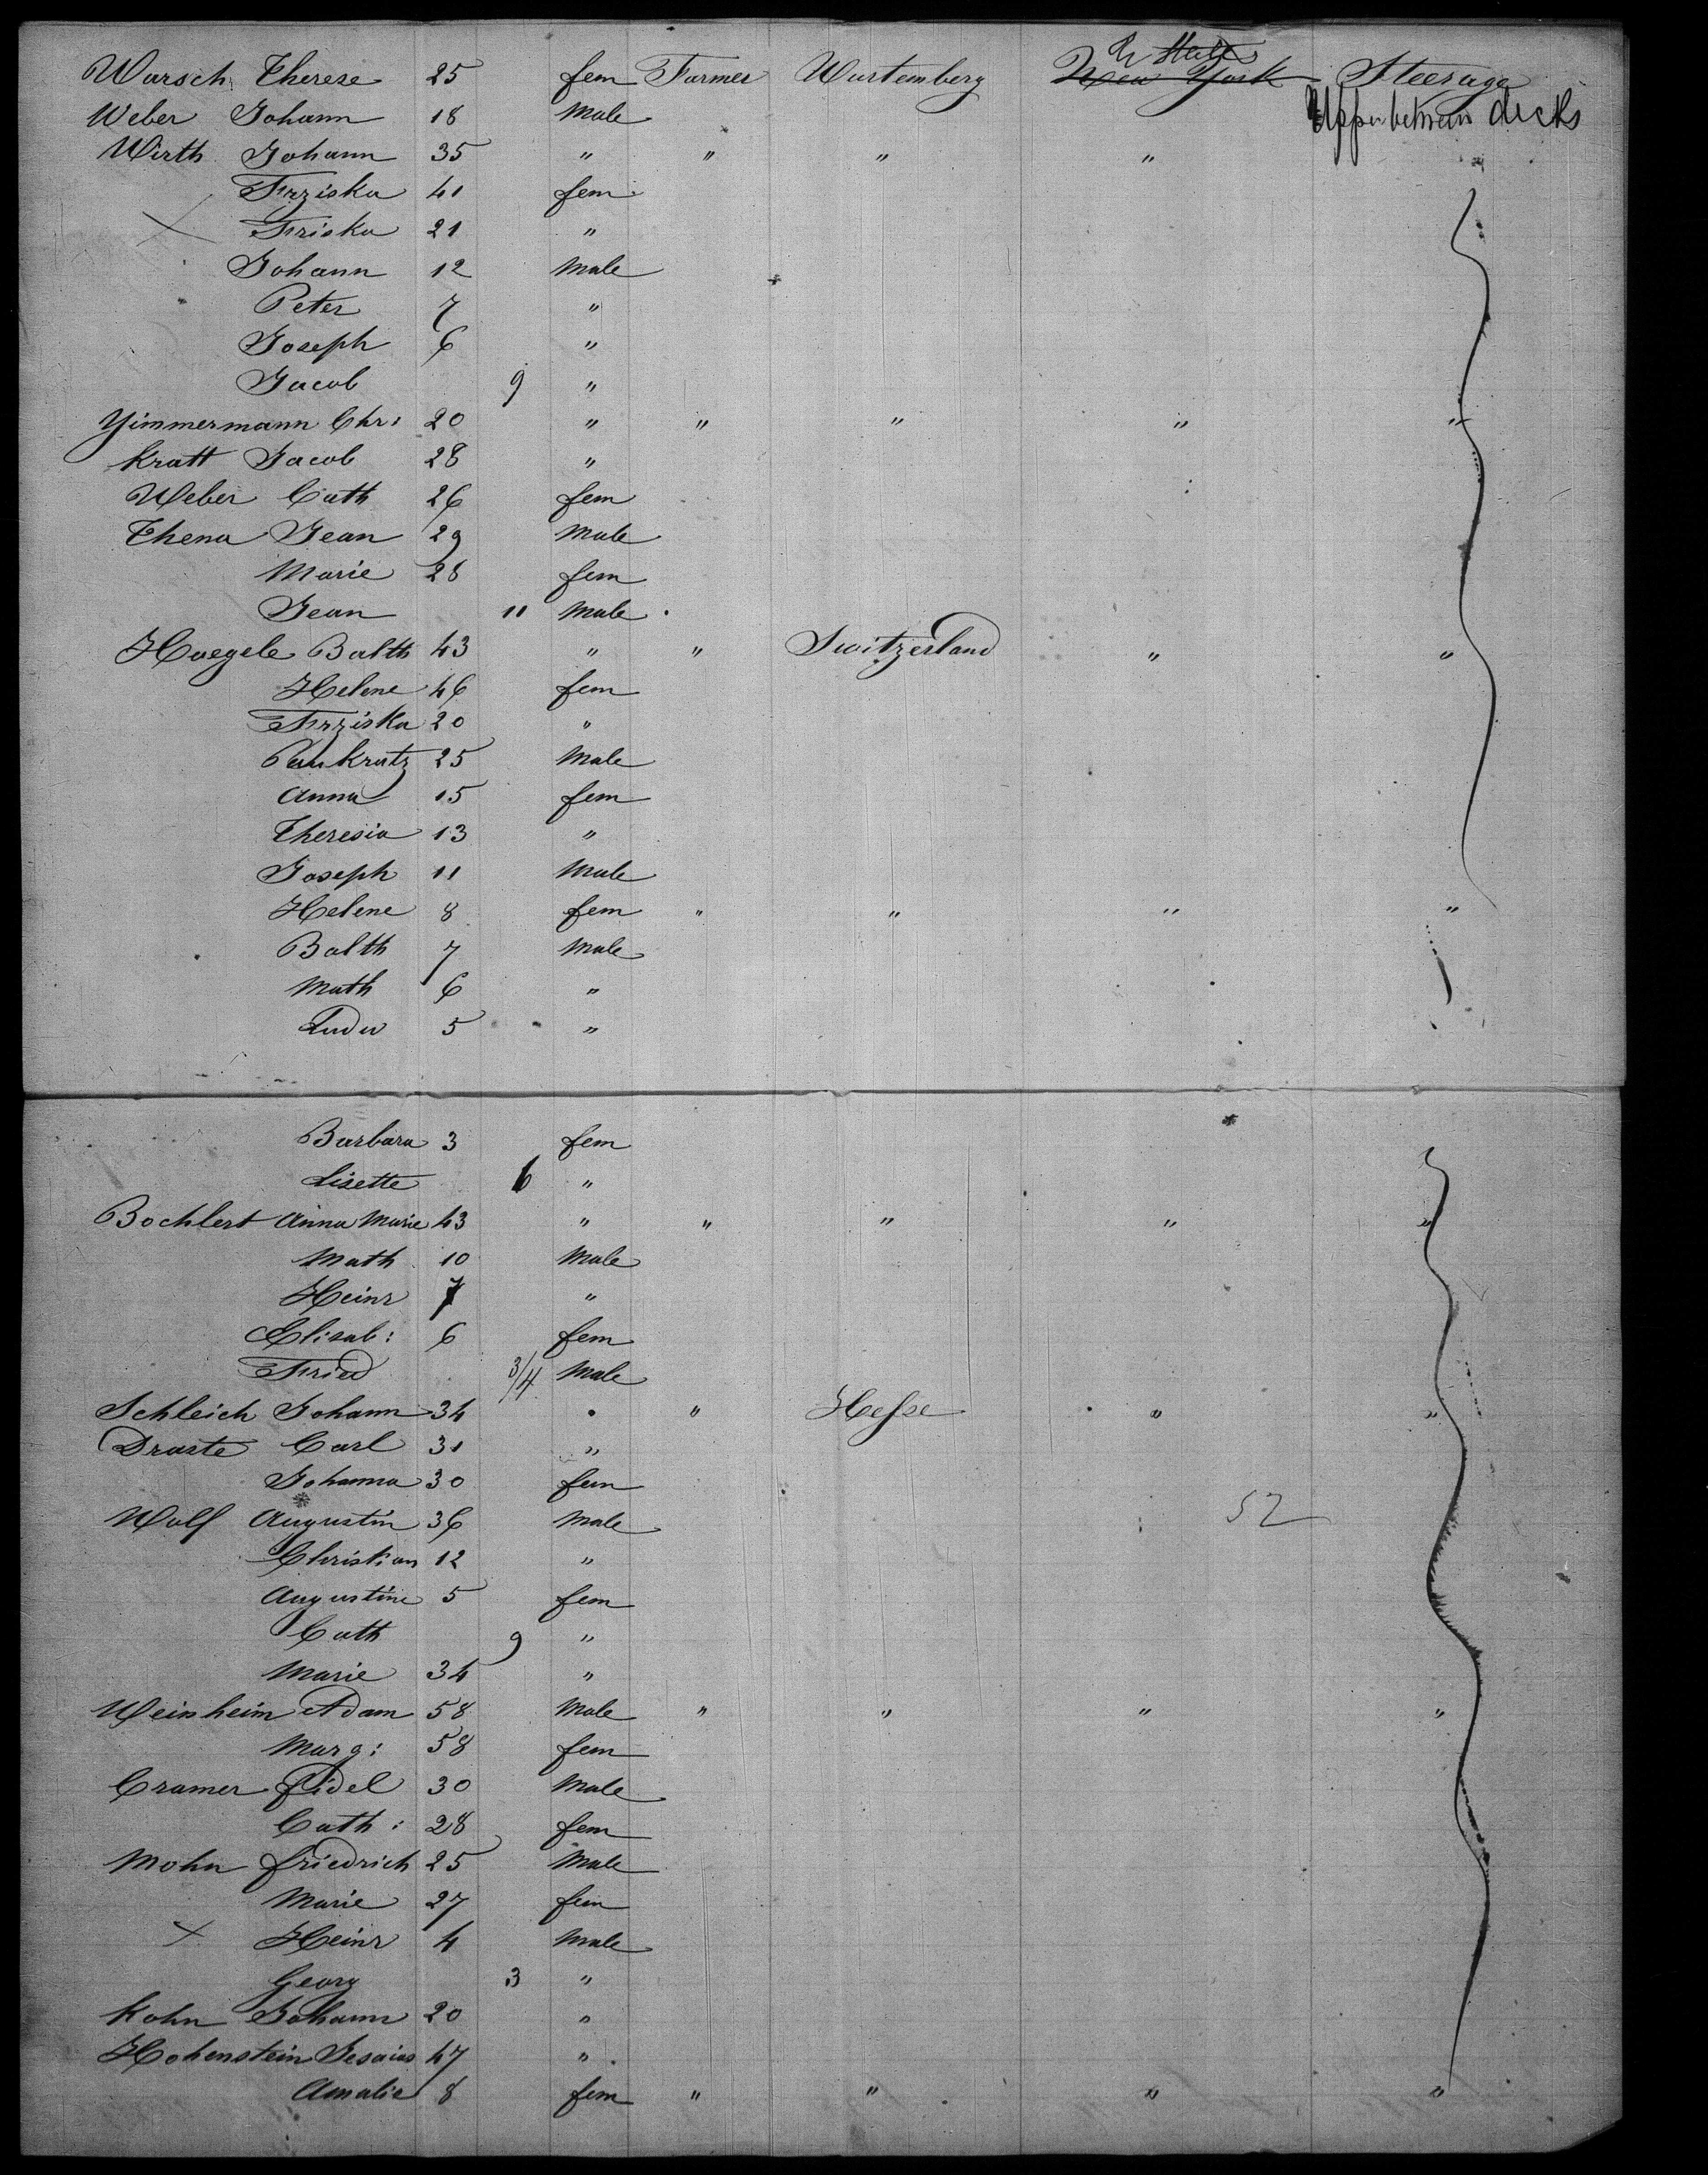 Warsch Therese 25 fem Farmer Wurtemberg U States New York Steerage
Weber Johann 18 Male Upper between decks
Wirth Johann 35 " " " "
Frziska 41 fem
Friska 21 "
Johann 12 Male
Peter 7 "
Joseph 6 "
Jacob 9 "
Zimmermann Chr: 20 " " " " "
Kratt Jacob 28 "
Weber Cath 26 fem
Thena Jean 29 Male
Marie 28 fem
Jean 11 Male
Haegele Balth 43 " " Switzerland " "
Helene 46 fem
Frziska 20 "
Pankratz 25 Male
Anna 15 fem
Theresia 13 "
Joseph 11 Male
Helene 8 fem " " " "
Balth 7 Male
Math 6 "
Ludw 5 "
Barbara 3 fem
Lisette 6 "
Bochlert Anna Marie 43 " " " " "
Math 10 Male
Heinr 7 "
Elisab: 6 fem
Fried 3/4 Male
Schleich Johann 34 " " Hesse " "
Draste Carl 31 "
Johanna 30 fem
Wolf Augustin 36 Male 52
Christian 12 "
Augustine 5 fem
Cath 9 "
Marie 34 "
Weinheim Adam 58 Male " " " "
Marg: 58 fem
Cramer Fidel 30 Male
Cath: 28 fem
Mohn Friedrich 25 Male
Marie 27 fem
Heinr 4 Male
Georg 3 "
Kohn Johann 20 "
Hohenstein Jesaias 47 "
Amalie 8 fem " " " "